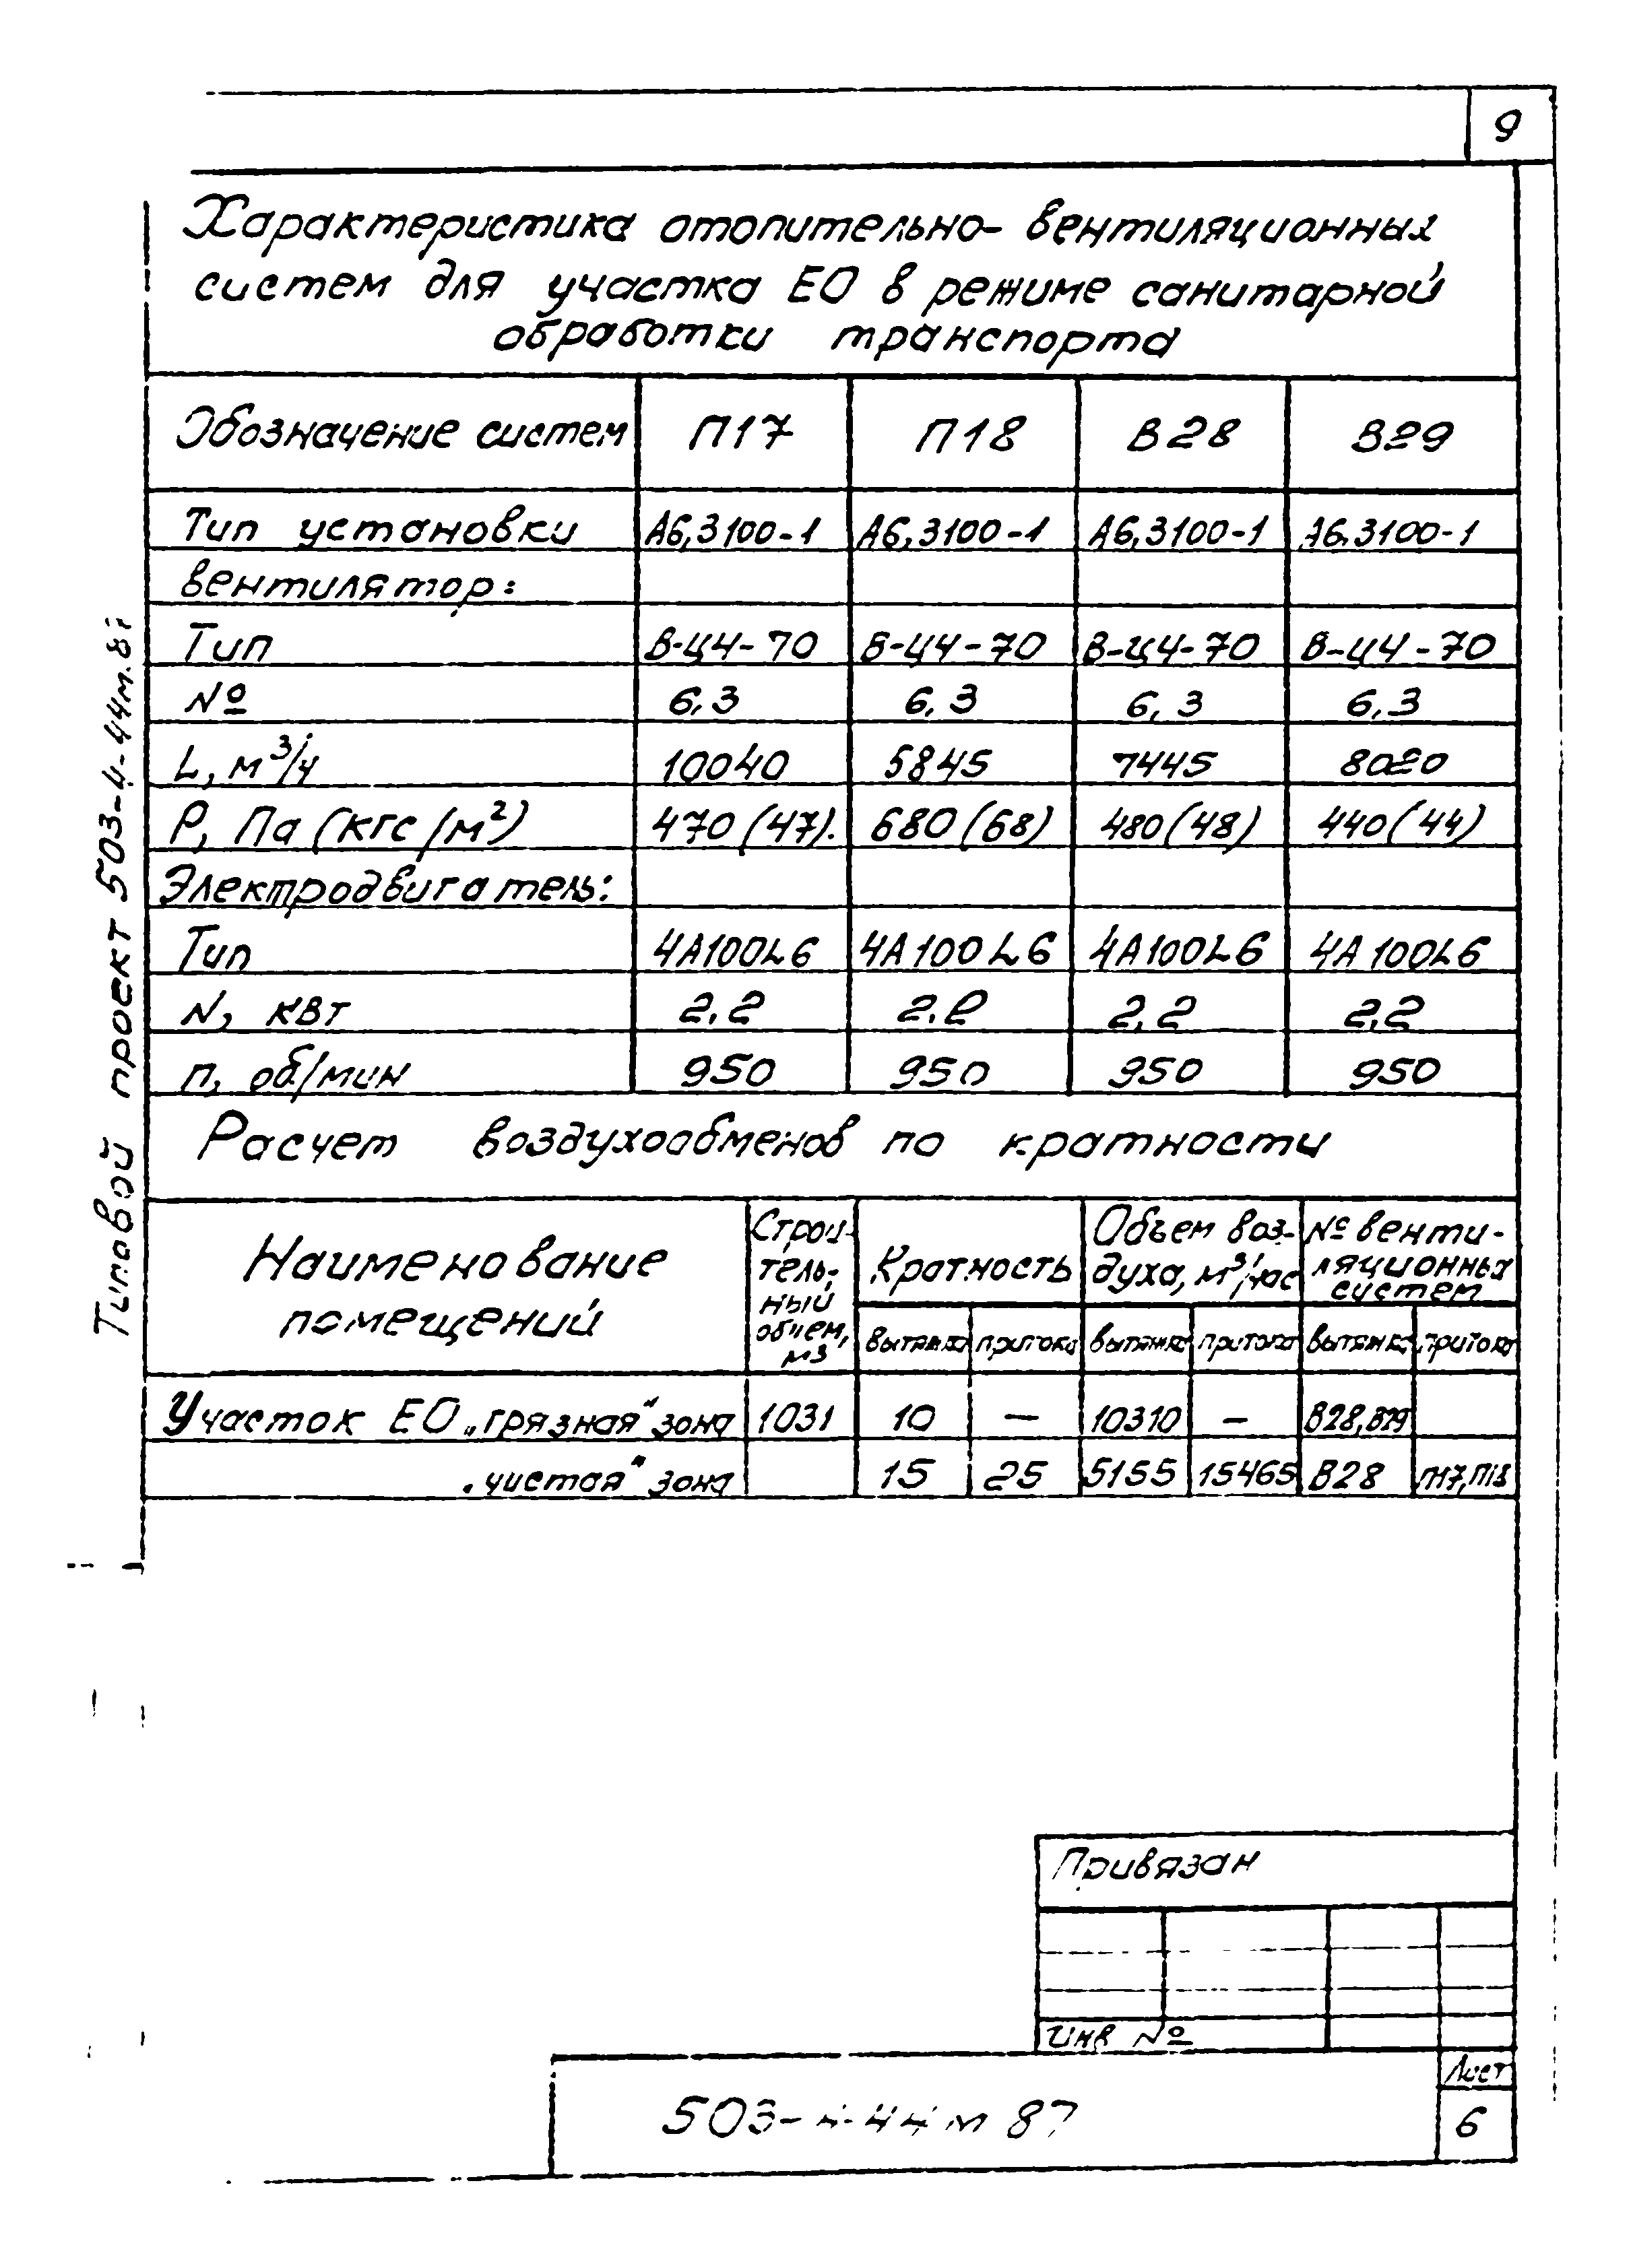 9
Характеристика отопительно-вентиляционных
систем для участка ЕО в режиме санитарной
обработки транспорта
Обозначение систем П17 П18 В28 В29
Тип установки А6,3100-1 А6,3100-1 А6,3100-1 А6.3100-1
вентилятор:
Тип В-Ц4-70 В-Ц4-70 В-Ц4-70 В-Ц4-70
№ 6,3 6,3 6,3 6,3
L, м³/ч 10040 5845 7445 8020
Р, Па (кгс/м²) 470(47). 680(68) 480(48) 440(44)
Электродвигатель:
Тип 4А100L6 4А100L6 4А100L6 4А100L6
N, квт 2,2 2,2 2,2 2,2
п, об/мин 950 950 950 950
Расчет воздухообменов по кратности
Наименование помещений
Строи-
тель-
ный
объем,
м3
Кратность
Объем воз-
духа, м³/час
№ венти-
ляционных
систем
вытяжка притока вытяжка притока вытяжка притока
Участок ЕО „грязная" зона 1031 10 — 10310 — В28,В29
„чистая" зона 15 25 5155 15465 В28 П17,П18
Типовой проект 503-4-44м.87
Привязан
Инв №
Лист
503-4-44м 87
6